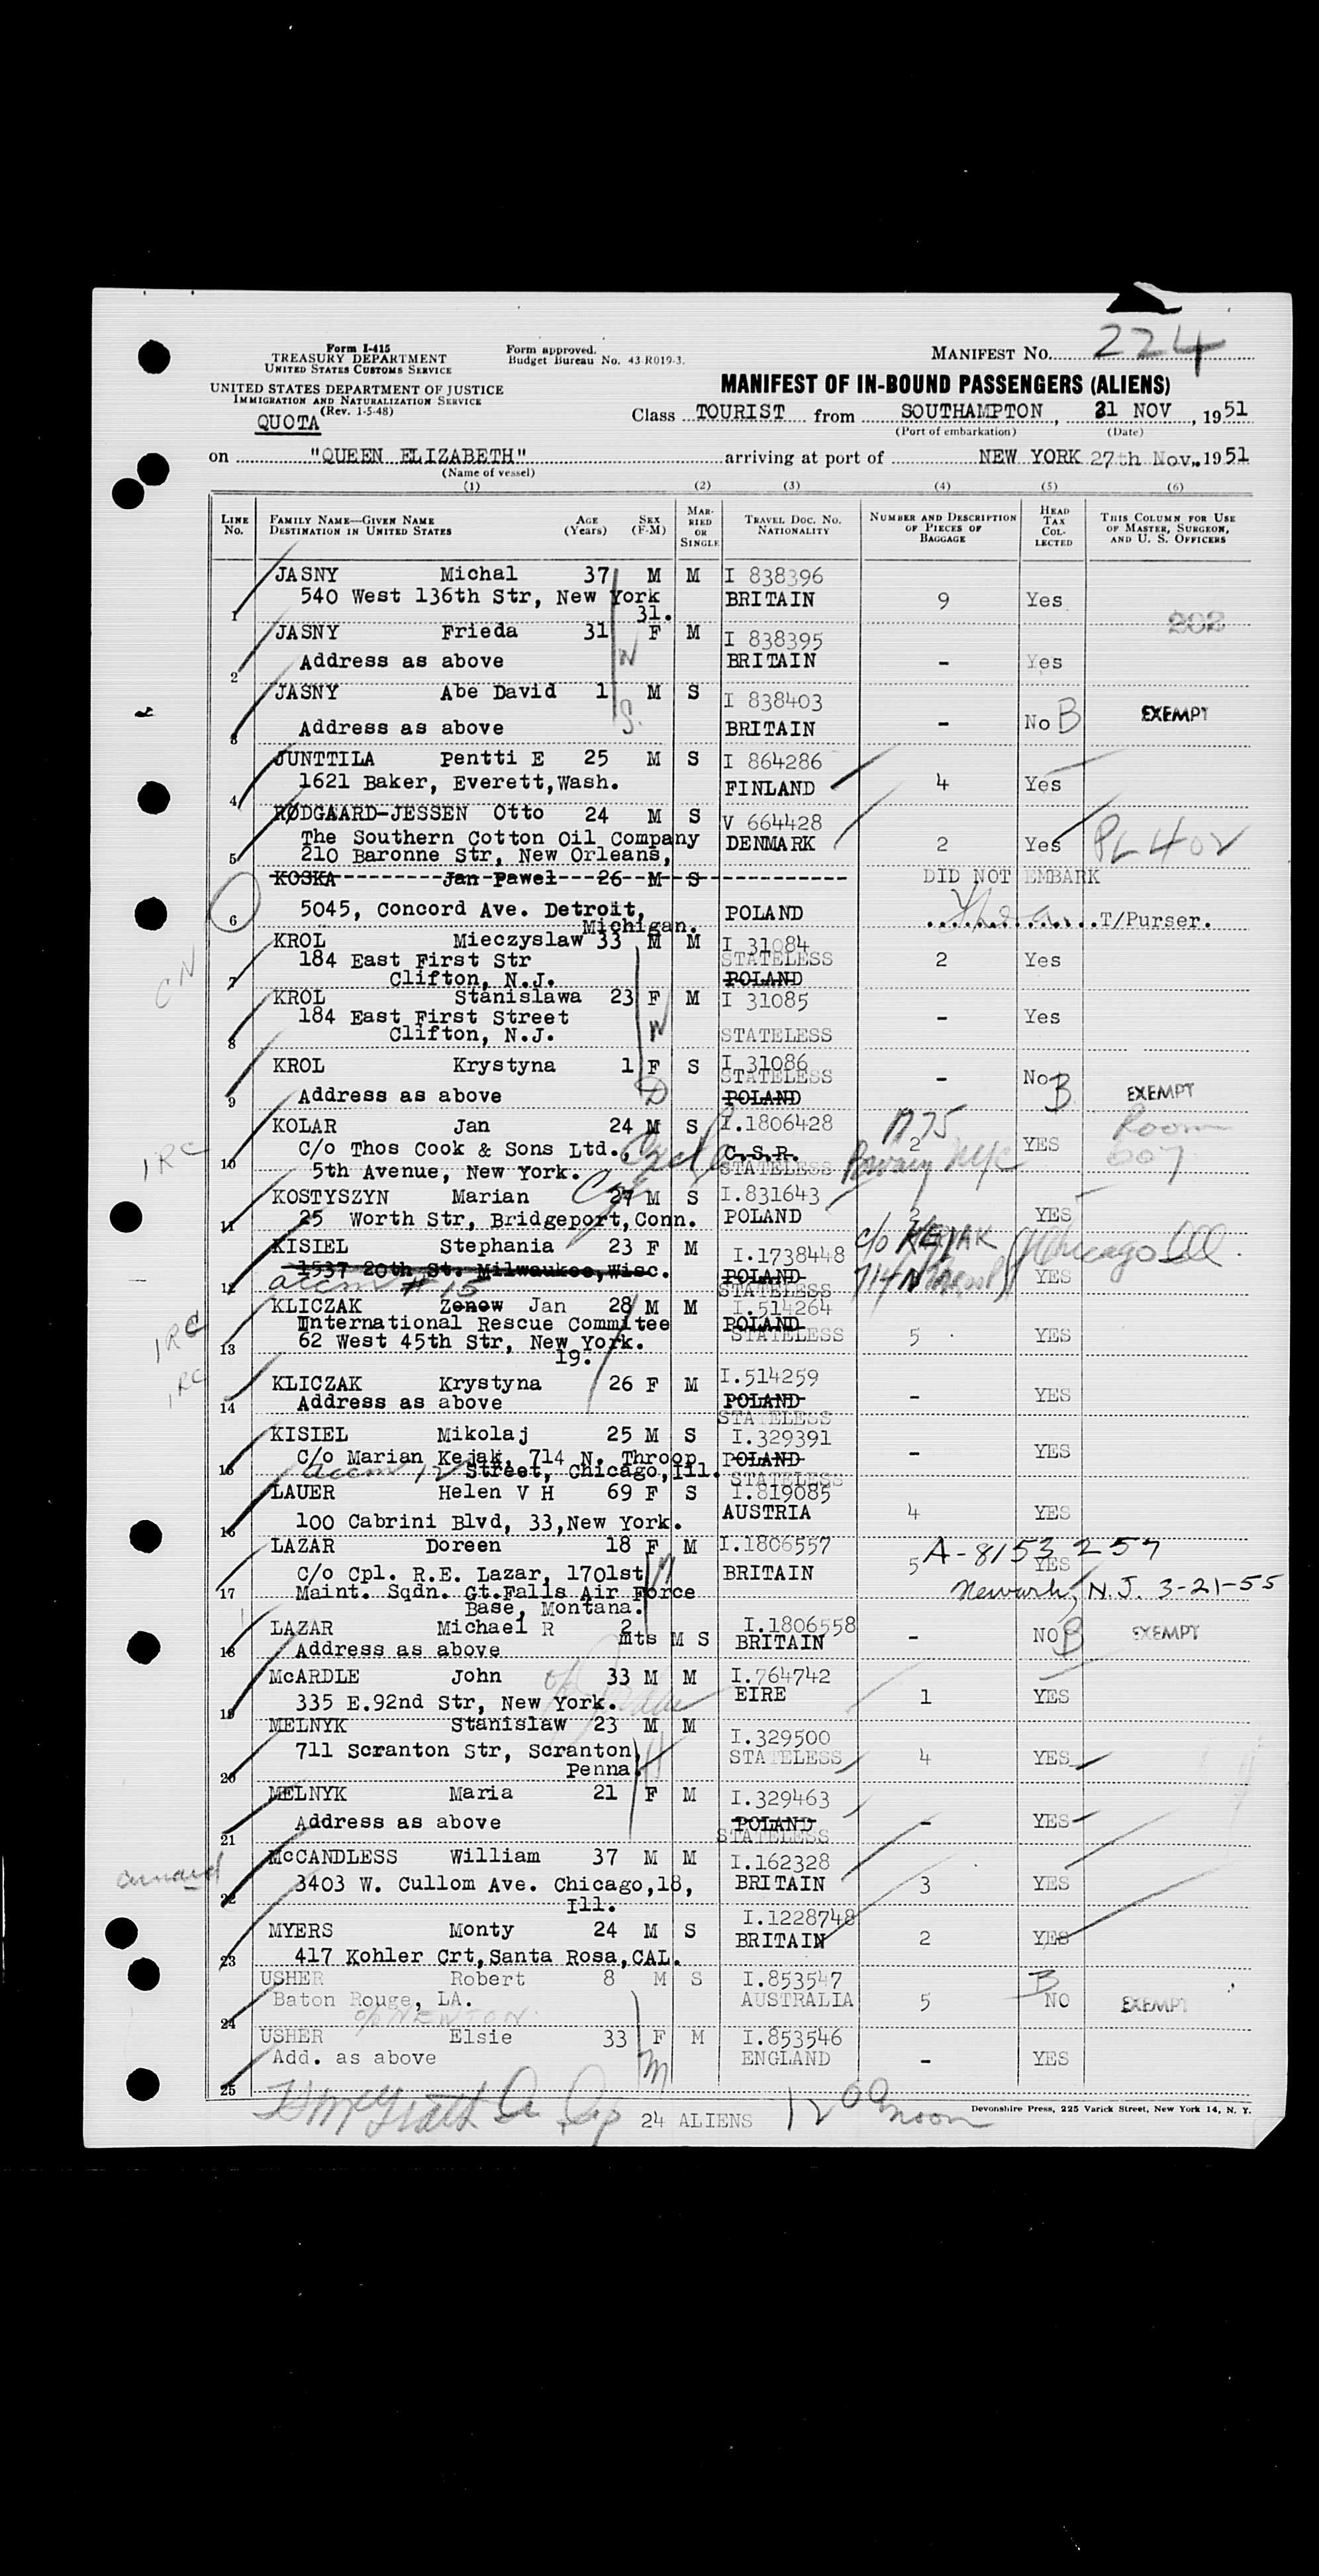 Form I-415
TREASURY DEPARTMENT
UNITED STATES CUSTOMS SERVICE
UNITED STATES DEPARTMENT OF JUSTICE
IMMIGRATION AND NATURALIZATION SERVICE
(Rev. 1-5-48)
QUOTA
Form approved.
Budget Bureau No. 43-R019-3.
MANIFEST NO. 224
MANIFEST OF IN-BOUND PASSENGERS (ALIENS)
Class TOURIST from SOUTHAMPTON, 21 NOV, 1951
(Port of embarkation) (Date)
on "QUEEN ELIZABETH" arriving at port of NEW YORK 27th Nov. 1951
(Name of vessel)
(1) (2) (3) (4) (5) (6)
LINE No. FAMILY NAME—GIVEN NAME DESTINATION IN UNITED STATES AGE (Years) SEX (F-M) MARRIED OR SINGLE TRAVEL DOC. NO. NATIONALITY NUMBER AND DESCRIPTION OF PIECES OF BAGGAGE HEAD TAX COLLECTED THIS COLUMN FOR USE OF MASTER, SURGEON, AND U. S. OFFICERS
JASNY Michal 37 M M I 838396
1 540 West 136th Str, New York 31. BRITAIN 9 Yes
302
JASNY Frieda 31 F M I 838395
W
2 Address as above BRITAIN - Yes
JASNY Abe David 1 M S I 838403
S.
3 Address as above BRITAIN - No B EXEMPT
JUNTTILA Pentti E 25 M S I 864286
4 1621 Baker, Everett,Wash. FINLAND 4 Yes
RØDGAARD-JESSEN Otto 24 M S V 664428
The Southern Cotton Oil Company DENMARK 2 Yes PL 402
5 210 Baronne Str, New Orleans,
KOSKA Jan Pawel 26 M S DID NOT EMBARK
6 5045, Concord Ave. Detroit, Michigan. POLAND T/Purser.
KROL Mieczyslaw 33 M M I 31084
184 East First Str STATELESS 2 Yes
7 Clifton, N.J. POLAND
CN
KROL Stanislawa 23 F M I 31085
184 East First Street - Yes
W
8 Clifton, N.J. STATELESS
KROL Krystyna 1 F S I 31086
STATELESS - No B EXEMPT
D
9 Address as above POLAND
KOLAR Jan 24 M S I.1806428 Room
IRC
10 C/o Thos Cook & Sons Ltd., C.S.R. 2 YES 607
5th Avenue, New York. STATELESS
KOSTYSZYN Marian 27 M S I.831643
11 25 Worth Str, Bridgeport,Conn. POLAND 2 YES
KISIEL Stephania 23 F M I.1738448 c/o KEJAK Chicago Ill.
1537 20th St. Milwaukee,Wisc. POLAND YES
12 accm #15 STATELESS
KLICZAK Zenow Jan 28 M M I.514264
International Rescue Commitee POLAND
IRC
13 62 West 45th Str, New York. 19. STATELESS 5 YES
IRC
KLICZAK Krystyna 26 F M I.514259
14 Address as above POLAND - YES
STATELESS
KISIEL Mikolaj 25 M S I.329391
C/o Marian Kejak, 714 N. Throop POLAND - YES
15 accm 12 Street, Chicago,Ill. STATELESS
LAUER Helen V H 69 F S I.819085
16 100 Cabrini Blvd, 33,New York. AUSTRIA 4 YES
LAZAR Doreen 18 F M I.1806557 A-8153 257
C/o Cpl. R.E. Lazar, 1701st BRITAIN 5 YES
17 Maint. Sqdn. Gt.Falls Air Force Newark, N.J. 3-21-55
Base, Montana.
LAZAR Michael R 2 mts M S I.1806558
18 Address as above BRITAIN - NO B EXEMPT
McARDLE John 33 M M I.764742
19 335 E.92nd Str, New York. EIRE 1 YES
MELNYK Stanislaw 23 M M I.329500
20 711 Scranton Str, Scranton, Penna. STATELESS 4 YES
MELNYK Maria 21 F M I.329463
21 Address as above POLAND - YES
STATELESS
McCANDLESS William 37 M M I.162328
22 3403 W. Cullom Ave. Chicago,18, Ill. BRITAIN 3 YES
MYERS Monty 24 M S I.1228748
23 417 Kohler Crt,Santa Rosa,CAL. BRITAIN 2 YES
USHER Robert 8 M S I.853547 B
24 Baton Rouge, LA. AUSTRALIA 5 NO EXEMPT
c/o NEWTON
USHER Elsie 33 F M I.853546
M
25 Add. as above ENGLAND - YES
24 ALIENS 12 00 noon
Devonshire Press, 225 Varick Street, New York 14, N. Y.